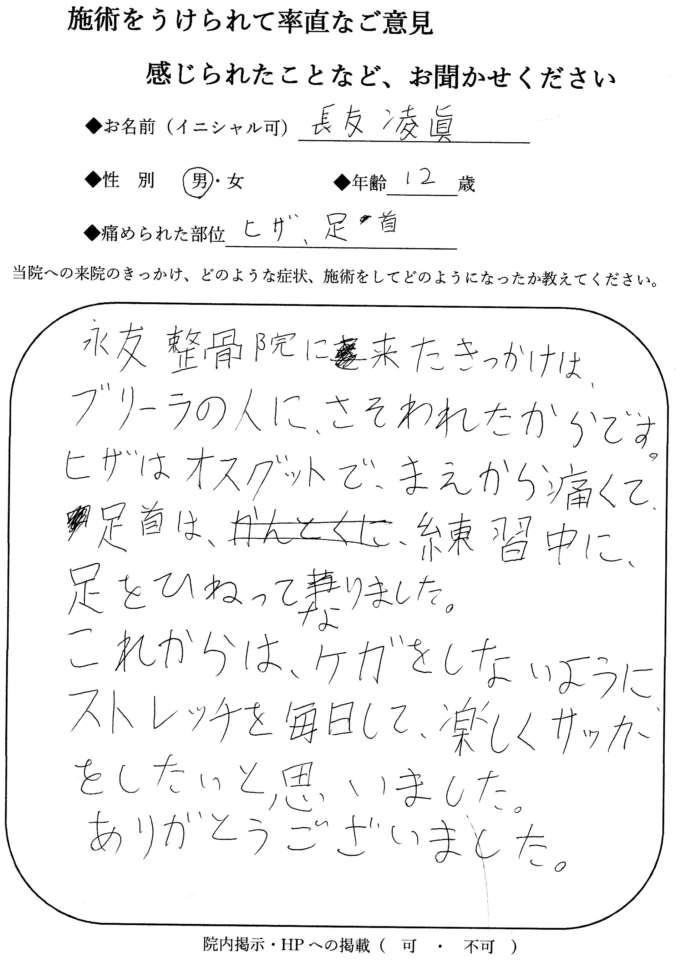 施術をうけられて率直なご意見
感じられたことなど、お聞かせください
◆お名前（イニシャル可） 長友 凌眞
◆性 別 男・女 ◆年齢 12 歳
◆痛められた部位 ヒザ、足首
当院への来院のきっかけ、どのような症状、施術をしてどのようになったか教えてください。
永友整骨院に来たきっかけは、
ブリーラの人に、さそわれたからです。
ヒザはオスグットで、まえから痛くて、
足首は、がんとくに、練習中に、
足をひねってなりました。
これからは、ケガをしないように
ストレッチを毎日して、楽しくサッカー
をしたいと思いました。
ありがとうございました。
院内掲示・HPへの掲載（ 可 ・ 不可 ）